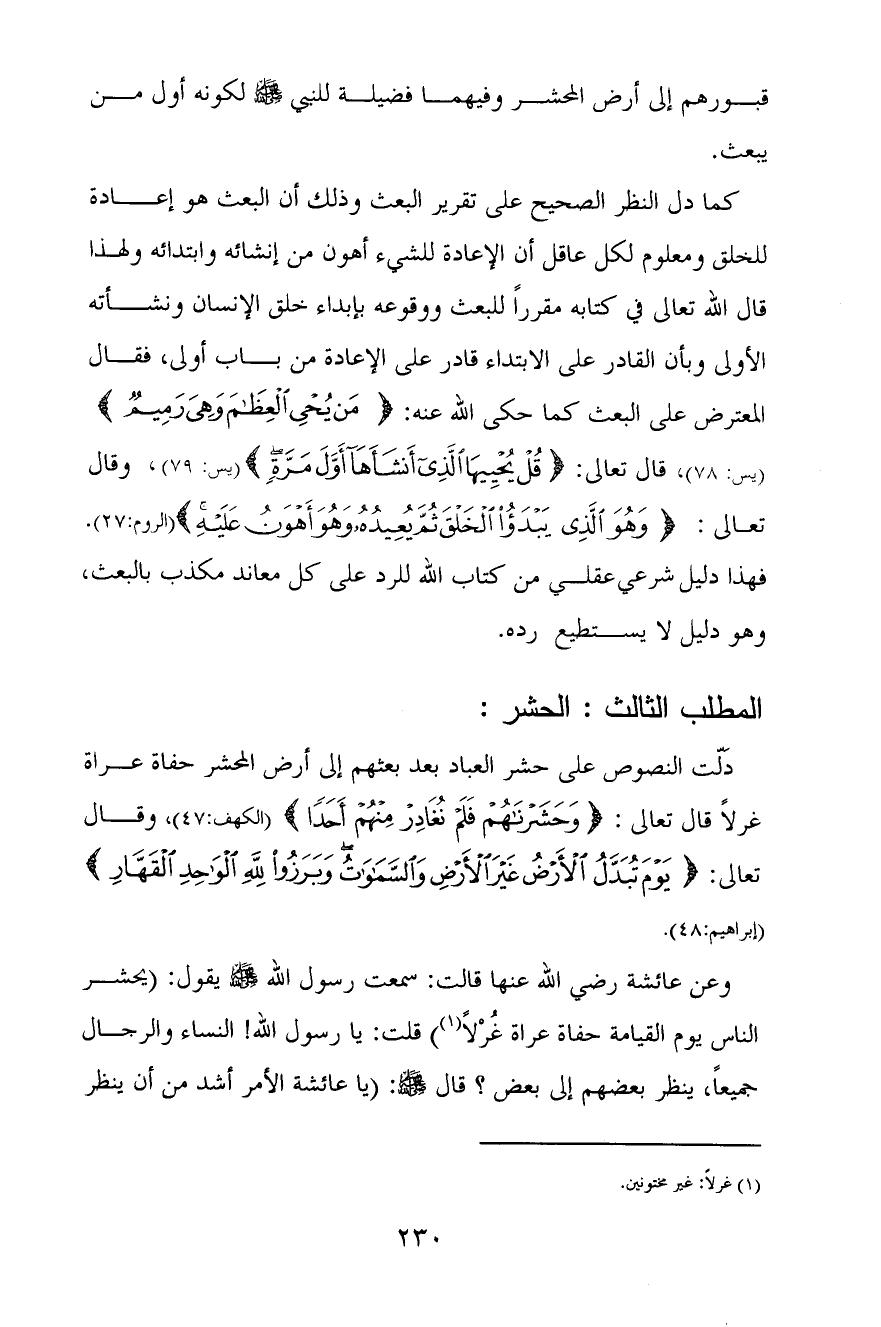 قبورهم إلى أرض المحشر وفيهما فضيلة للنبي ﷺ لكونه أول من
يبعث.
كما دل النظر الصحيح على تقرير البعث وذلك أن البعث هو إعادة
للخلق ومعلوم لكل عاقل أن الإعادة للشيء أهون من إنشائه وابتدائه ولهذا
قال الله تعالى في كتابه مقرراً للبعث ووقوعه بإبداء خلق الإنسان ونشأته
الأولى وبأن القادر على الابتداء قادر على الإعادة من باب أولى، فقال
المعترض على البعث كما حكى الله عنه: ﴿ مَن يُحْيِ ٱلْعِظَٰمَ وَهِىَ رَمِيمٌ ﴾
(يس: ٧٨)، قال تعالى: ﴿ قُلْ يُحْيِيهَا ٱلَّذِىٓ أَنشَأَهَآ أَوَّلَ مَرَّةٍۖ ﴾(يس: ٧٩)، وقال
تعالى : ﴿ وَهُوَ ٱلَّذِى يَبْدَؤُا۟ ٱلْخَلْقَ ثُمَّ يُعِيدُهُۥ وَهُوَ أَهْوَنُ عَلَيْهِۚ ﴾(الروم:٢٧).
فهذا دليل شرعي عقلي من كتاب الله للرد على كل معاند مكذب بالبعث،
وهو دليل لا يستطيع رده.
المطلب الثالث : الحشر :
دلّت النصوص على حشر العباد بعد بعثهم إلى أرض المحشر حفاة عراة
غرلاً قال تعالى : ﴿ وَحَشَرْنَٰهُمْ فَلَمْ نُغَادِرْ مِنْهُمْ أَحَدًا ﴾ (الكهف:٤٧)، وقال
تعالى: ﴿ يَوْمَ تُبَدَّلُ ٱلْأَرْضُ غَيْرَ ٱلْأَرْضِ وَٱلسَّمَٰوَٰتُۖ وَبَرَزُوا۟ لِلَّهِ ٱلْوَٰحِدِ ٱلْقَهَّارِ ﴾
(إبراهيم:٤٨).
وعن عائشة رضي الله عنها قالت: سمعت رسول الله ﷺ يقول: (يحشر
الناس يوم القيامة حفاة عراة غُرْلاً(١)) قلت: يا رسول الله! النساء والرجال
جميعاً، ينظر بعضهم إلى بعض ؟ قال ﷺ: (يا عائشة الأمر أشد من أن ينظر
(١) غرلاً: غير مختونين.
٢٣٠